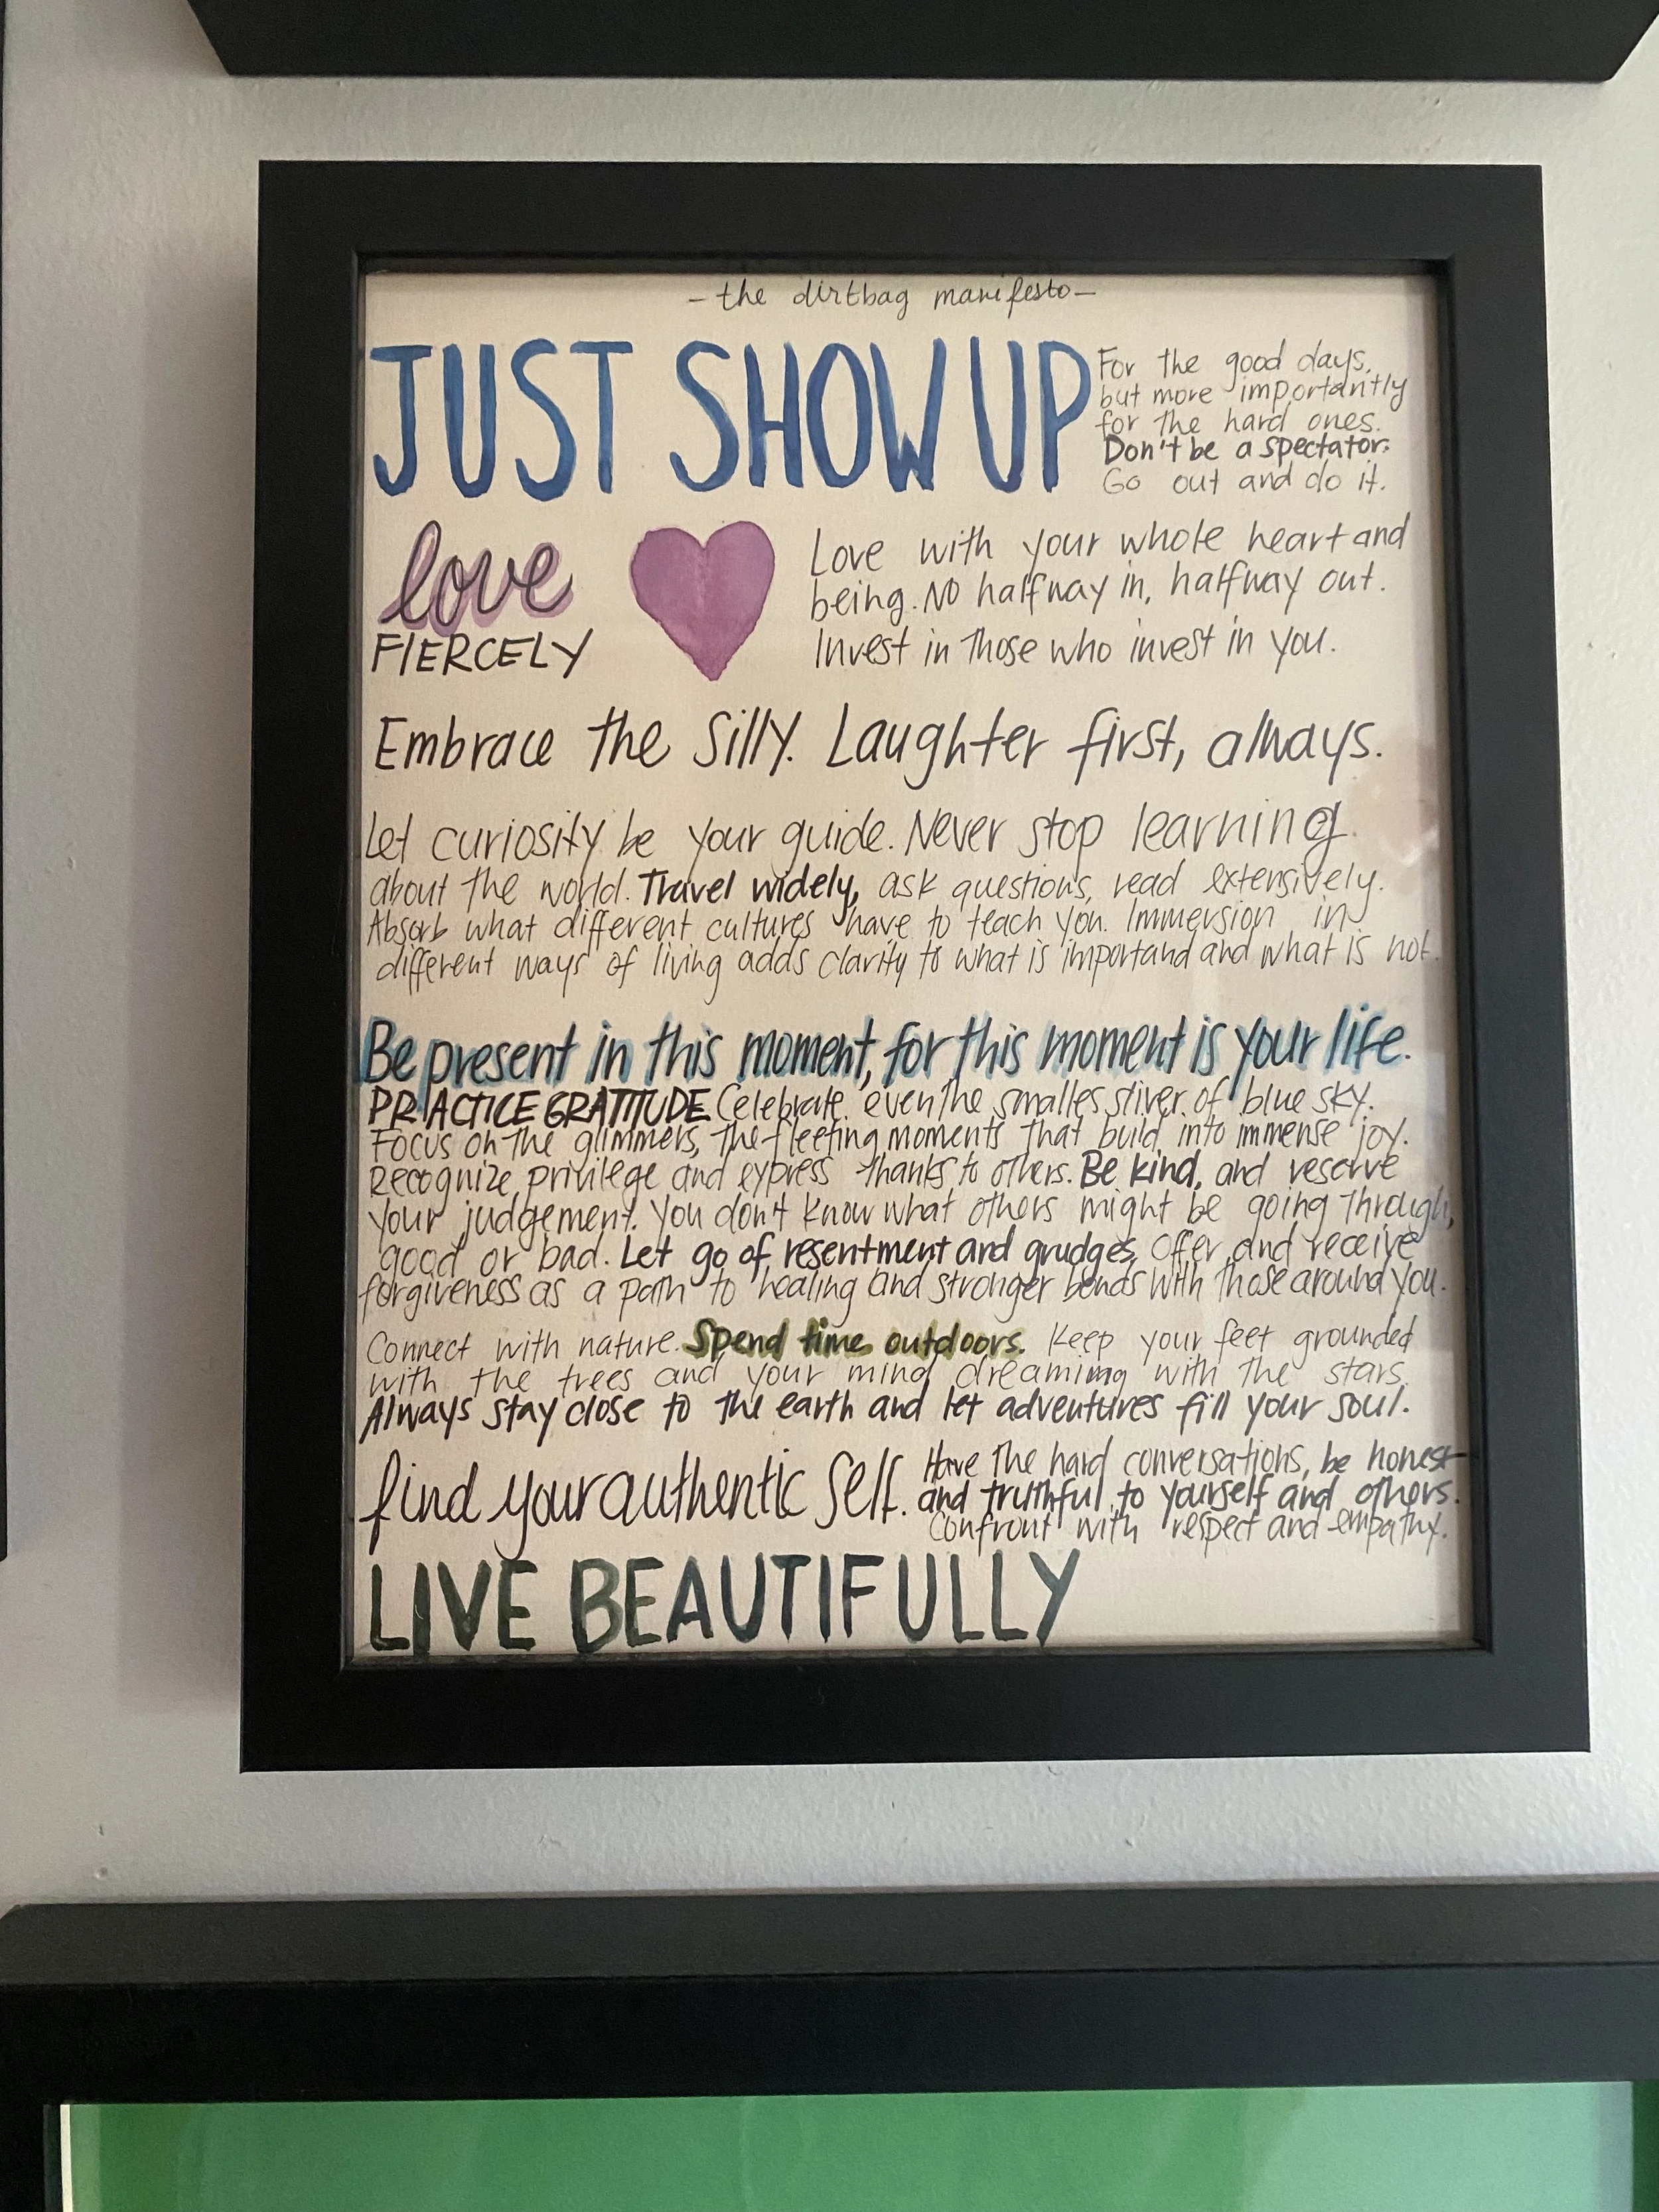 - the dirtbag manifesto -
JUST SHOW UP
For the good days,
but more importantly
for the hard ones.
Don't be a spectator.
Go out and do it.
love
FIERCELY
Love with your whole heart and
being. NO halfway in, halfway out.
Invest in those who invest in you.
Embrace the silly. Laughter first, always.
Let curiosity be your guide. Never stop learning
about the world. Travel widely, ask questions, read extensively.
Absorb what different cultures have to teach you. Immersion in
different ways of living adds clarity to what is importand and what is not.
Be present in this moment, for this moment is your life.
PRACTICE GRATITUDE Celebrate even the smalles sliver of blue sky.
Focus on the glimmers, the fleeting moments that build into immense joy.
Recognize privilege and express thanks to others. Be kind, and reserve
your judgement. You don't know what others might be going through,
good or bad. Let go of resentment and grudges, offer and receive
forgiveness as a path to healing and stronger bonds with those around you.
Connect with nature. Spend time outdoors. Keep your feet grounded
with the trees and your mind dreaming with the stars.
Always stay close to the earth and let adventures fill your soul.
find your authentic self.
Have the hard conversations, be honest
and truthful to yourself and others.
Confront with respect and empathy.
LIVE BEAUTIFULLY